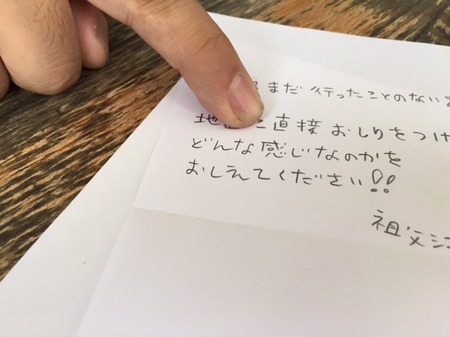 まだ行ったことのない
地 に直接おしりをつけ
どんな感じなのかを
おしえてください!!
祖父ジ